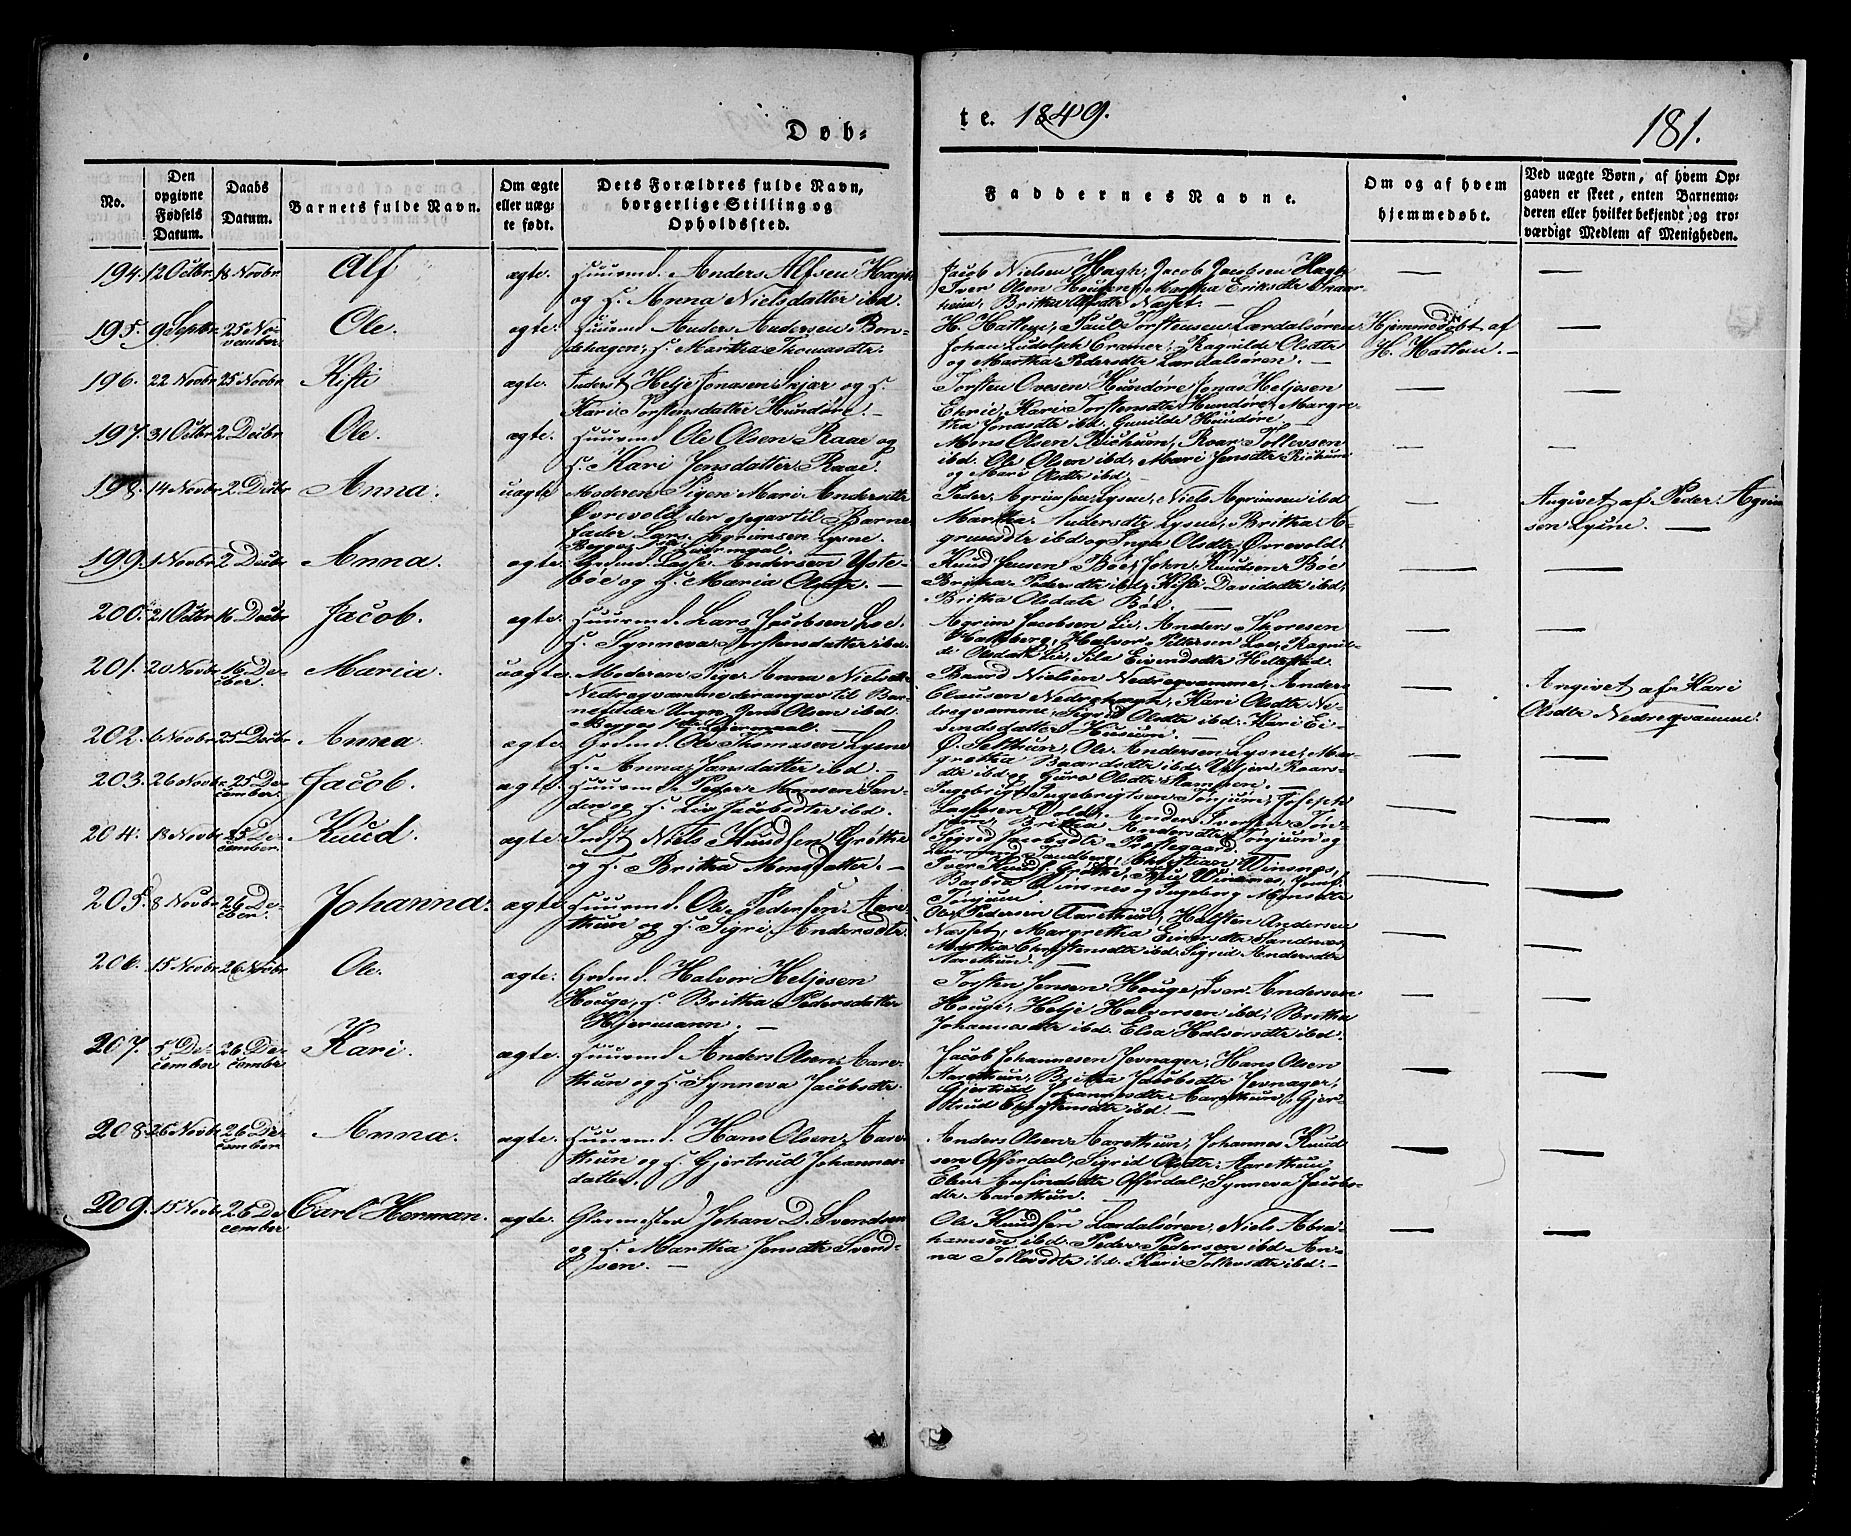 Døb-
te. 1849.
181.
No.
Den opgivne Fødsels Datum.
Daabs Datum.
Barnets fulde Navn.
Om ægte eller uæg-te født.
Dets Forældres fulde Navn, borgerlige Stilling og Opholdssted.
Faddernes Navne.
Om og af hvem hjemmedøbt.
Ved uægte Børn, af hvem Op-
gaven er skeet, enten Barnemo-
deren eller hvilket bekjendt og tro-
værdigt Medlem af Menigheden.
194. 12 Octbr 18 Novbr Alf ægte. Huusmd. Anders Alfsen Hægh
og H. Anna Nielsdatter ibd.
Jacob Nielsen Hægh, Jacob Jacobsen Hægh
Iver Olsen Martha Eriksdtr
Britha Olsdtr Næset. —
195. 9 Septbr. 25 No-
vember Ole. ægte. Huusmd Anders Andersen Ben-
dehagen, H. Martha Thomasdtr.
H. Hatlem, Paul Torstensen Lærdalsøren
Johan Ludolph Cramer, Ragnilde Olsdtr
og Martha Pedersdtr Lærdalsøren. —
Hjemmedøbt af
H. Hatlem. —
196. 22 Novbr 25 Novbr Kisti ægte. Inderst Helje Jonasen Skjær og H.
Kari Torstensdatter Hundøre. —
Torsten Ovesen Hundøre Jonas Heljesen
Ehrie, Kari Torstensdtr Hundøre, Margre-
tha Jonasdtr ibd. Gunilde Hundøre
197. 31 Octbr 2 Decbr Ole. ægte. Huusmd Ole Olsen Raae og
H. Kari Jensdatter Raae.
Mons Olsen Richum, Roar Tollevsen
ibd. Ole Olsen ibd, Mari Jensdtr Richum
og Mari Olsdtr ibd.
198. 14 Novbr 2 Decbr Anna. uægte Moderen Pigen Mari Andersdtr
Øvrevold, der opgav til Barne-
fader Lars Agrimsen Lysne.
Begges 1ste Leiermaal.
Peder Agrimsen Lysne, Niels Agrimsen ibd
Martha Andersdtr Lysne, Britha A-
grimsdtr ibd og Inga Olsdtr Øvrevold.
Angivet af Peder Agrim-
sen Lysne. —
199. 1 Novbr 2 Decbr Anna. ægte. Grdmd. Lasse Andersen Yste-
bøe og H. Maria Olsdtr. —
Knud Jensen Bøe, John Knudsen Bøe
Britha Pedersdtr ibd, Kisti Davidsdtr ibd,
Britha Olsdatr Bøe. —
200. 21 Octbr 16 Decbr Jacob. ægte. Huusmd. Lars Jacobsen Loe.
H. Synneva Torstensdatter ibd.
Agrim Jacobsen Liv, Anders Thoresen
Halvor Pettersen Loe, Ragnil-
de Olsdatr Liv, Sila Eivendsdtr
201. 20 Novbr 16 De-
cber. Maria. uægte. Moderen Pige Anna Nielsdtr
Nedreqvamme der angav til Bar-
nefader Ungk. Jens Olsen ibd.
Begges 1ste Leiermaal. —
Baard Nielsen Nedreqvamme, Anders
Clausen Kari Olsdtr Ne-
dreqvamme, Sigrid Olsdtr ibd. Kari Ei-
vendsdatter Husum. —
Angivet af Kari
Olsdtr Nedreqvamme.
202. 6 Novbr. 25 Decbr Anna ægte. Grdmd. Ole Thomasen Lysne
H. Anna Jansdatter ibd. —
Ø. Ole Andersen Lysne, Mar-
gretha Baardsdtr ibd. Roars-
dtr ibd og Guro Olsdtr —
203. 26 Novbr 25 De-
cember. Jacob. ægte Huusmd. Peder Monsen San-
den og H. Liv Jacobsdtr ibd.
Ingebrigt Ingebrigtsen Tønjum, Joseph
Anders Iversen Tøn-
jum, Britha Andersdtr Tønjum og
Sigrid Jacobsdtr
204. 18 Novbr 25 De-
cember. Knud ægte Indst Niels Knudsen Grøthe
og H. Britha Monsdatter. —
Christian Winsnes,
Iver Knuds. Grøthe, Winsnes,
Barbra Winsnes og Ingeborg Monsdtr
Tønjum.
205. 8 Novbr 26 De-
cber. Johanna. ægte Huusmd. Ole Pedersen Aare-
thun og H. Sigri Andersdtr.
Ole Pedersen Aarethun, Halsten Andersen
Næset, Margretha Einersdtr Sandnæs,
Martha Christensdtr ibd. Sigrid Andersdtr
Aarethun. —
206. 15 Novbr 26 Novbr Ole. ægte. Grdmd. Halvor Heljesen
Houge, H. Britha Pedersdatter
Hjermann. —
Torsten Jensen Houge, Iver Andersen
Houge, Helje Halvorsen ibd. Britha
Johannasdtr ibd. Elsa Halvorsdtr ibd.
207. 5 De-
cember 26 De-
cember Kari. ægte. Huusmd Anders Olsen Aare-
thun og H. Synneva Jacobsdtr.
Jacob Johannesen Jevnager, Hans Olsen
Aarethun, Britha Jacobsdtr Jevnager,
Gjertrud Johannesdtr Aarethun, Gjer-
trud Christensdtr ibd. —
208. 26 Novbr 26 De-
cember. Anna. ægte. Huusmd. Hans Olsen Aare-
thun og H. Gjertrud Johannes-
datter.
Anders Olsen Aarethun, Johannes Knud-
sen Offerdal, Sigrid Olsdtr Aarethun
Offerdal, Synneva Jacobs-
dtr Aarethun. —
209. 15 Novbr. 26 De-
cember Carl Herman. ægte. Glarmester Johan D. Svendsen
og H. Martha Jensdtr Svend-
sen. —
Ole Knudsen Lærdalsøren, Niels Abra-
hamsen ibd. Peder Pedersen ibd An-
na Tollevsdtr ibd. Kari Tollevsdtr ibd. —